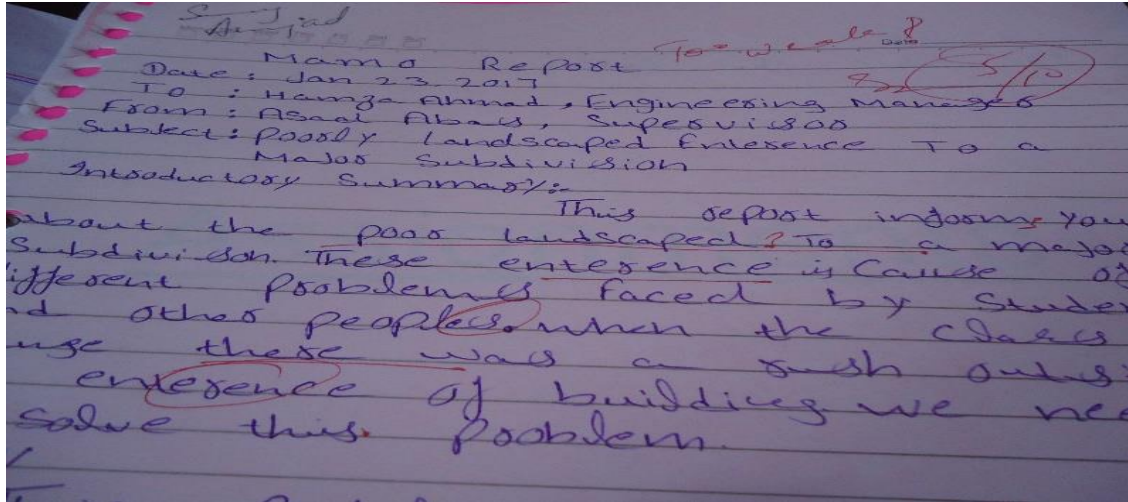 Too weak
5/10
Mamo Report
Date : Jan 23 2017
To : Hamza Ahmad, Engineering Manager
From : Asad Abacs, Supervissor
Subject : Poorly Landscaped Enterence To a
Major Subdivission
Introductory Summary:-
This report informs you
about the poor landscaped? To a major
Subdivison. These enterence is Cause of
different problems faced by Studen
nd other peoples. when the class
nge there was a rush outsi
enterence of building we nee
solve this problem.